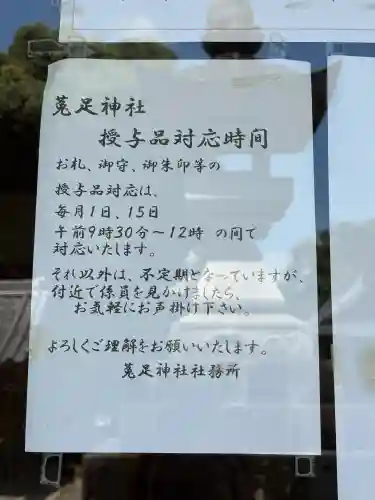 菟足神社
授与品対応時間
お札、御守、御朱印等の
授与品対応は、
毎月1日、15日
午前9時30分〜12時 の間で
対応いたします。
それ以外は、不定期となっていますが、
付近で係員を見かけましたら、
お気軽にお声掛け下さい。
よろしくご理解をお願いいたします。
菟足神社社務所